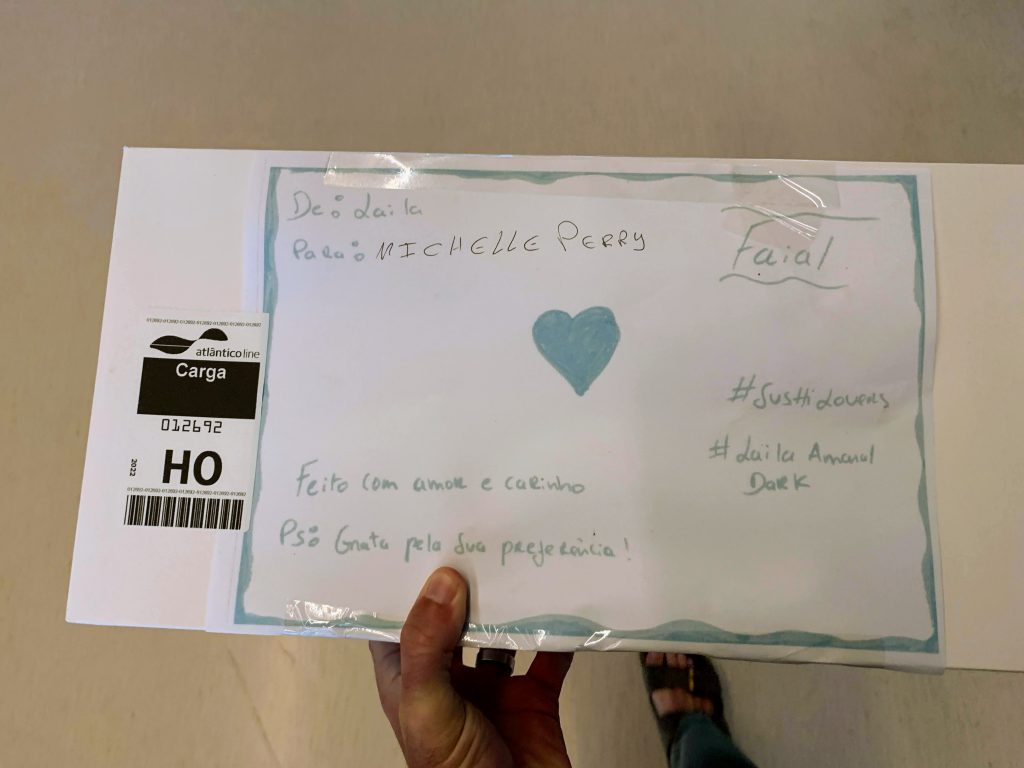 De: Laila
Para: MICHELLE PERRY
Faial
#SusHiLovers
#Laila Amaral
Dark
Feito com amor e carinho
Ps: Grata pela sua preferência!
012692-012692-012692-012692-012692-012692
atlânticoline
Carga
012692
2022
HO
012692-012692-012692-012692-012692-012692